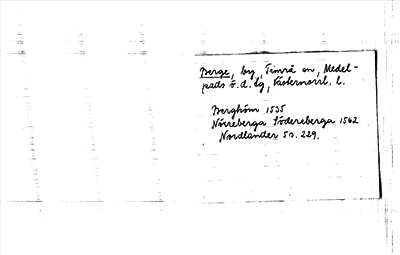 Berge, by, Timrå sn, Medel-
pads ö.d.sg, Västernorrl. l.
Berghöm 1535
Nörreberga Södereberga 1562
Nordlander sn. 229.